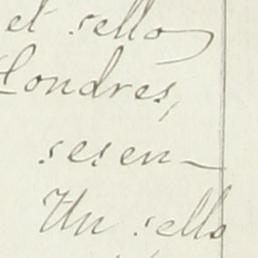 el sello
Londres,
sesen-
Un sello